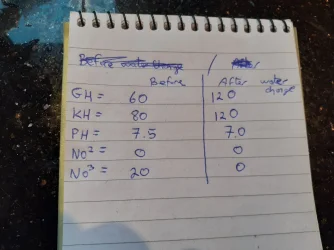 Before After water change
GH = 60 120
KH = 80 120
PH = 7.5 7.0
No² = 0 0
No³ = 20 0